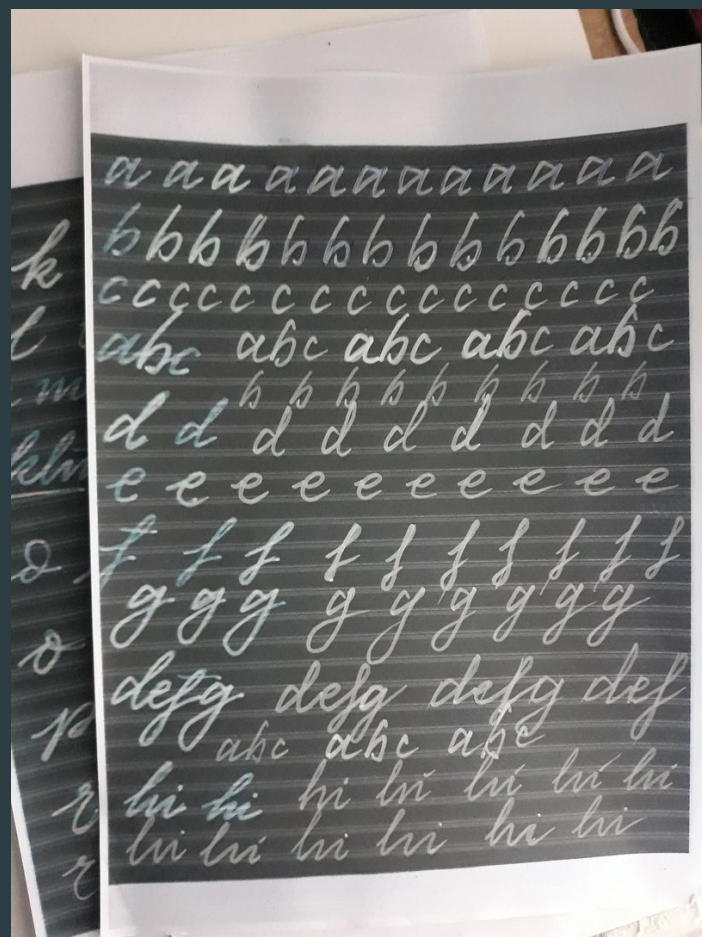 a a a a a a a a a a a a a
b b b b b b b b b b b b b b
c c c c c c c c c c c c c c c c
abc abc abc abc abc
b b b b b b b b b
d d d d d d d d d
e e e e e e e e e e
f f f f f f f f f
g g g g g g g g g
defg defg defg def
abc abc abc
hi hi hi hi hi hi hi
hi hi hi hi hi hi
k
m
klm
o
o
p
r
r